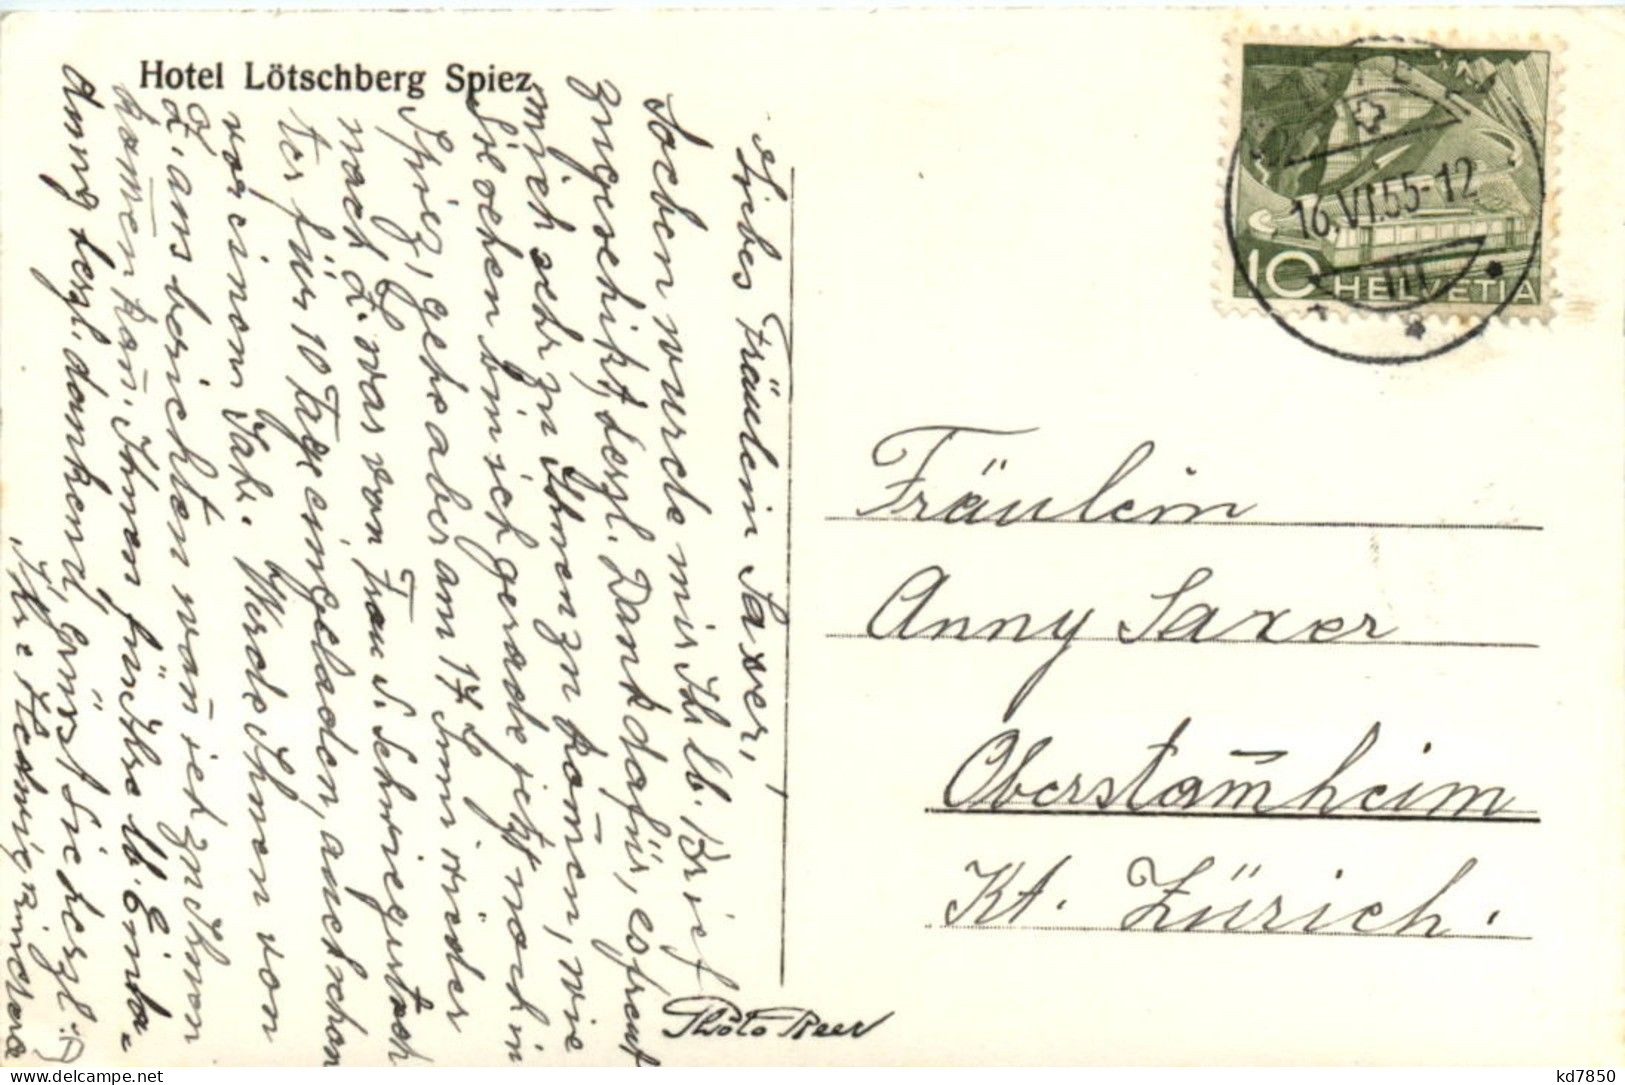 Hotel Lötschberg Spiez
Liebes Fräulein Saxer,
Soeben wurde mir Ihr lb. Brief
zugeschikt, herzl. Dank dafür, es freut
mich sehr zu Ihnen zu kom̄en, wie
Sie sehen bin ich gerade jetzt noch in
Spiez, gehe aber am 17. Juni wieder
nach Z. war von Frau S. Schwiegertoch
ter für 10 Tage eingeladen, auch schon
vor einem Jahr. Werde Ihnen von
Z. aus berichten wan̄ ich zu Ihnen
kom̄en kan̄. Ihnen für Ihre lb. Einla-
dung herzl. dankend, grüsst Sie herzl.
Ihre Hedwig
HELVETIA
10
16.VI.55-12
III
Fräulein
Anny Saxer
Oberstam̄heim
Kt. Zürich.
Photo Beer
kd7850